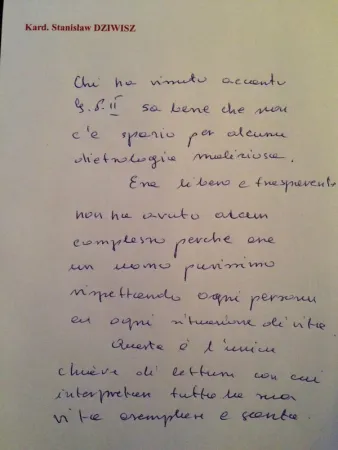 Kard. Stanisław DZIWISZ
Chi ha vissuto accanto
G.P.II sa bene che non
c'è spazio per alcuna
dietrologia maliziosa.
Era libero e trasparente
non ha avuto alcun
complesso perché era
un uomo purissimo
rispettando ogni persona
in ogni situazione di vita.
Questa è l'unica
chiave di lettura con cui
interpretare tutta la sua
vita esemplare e santa.